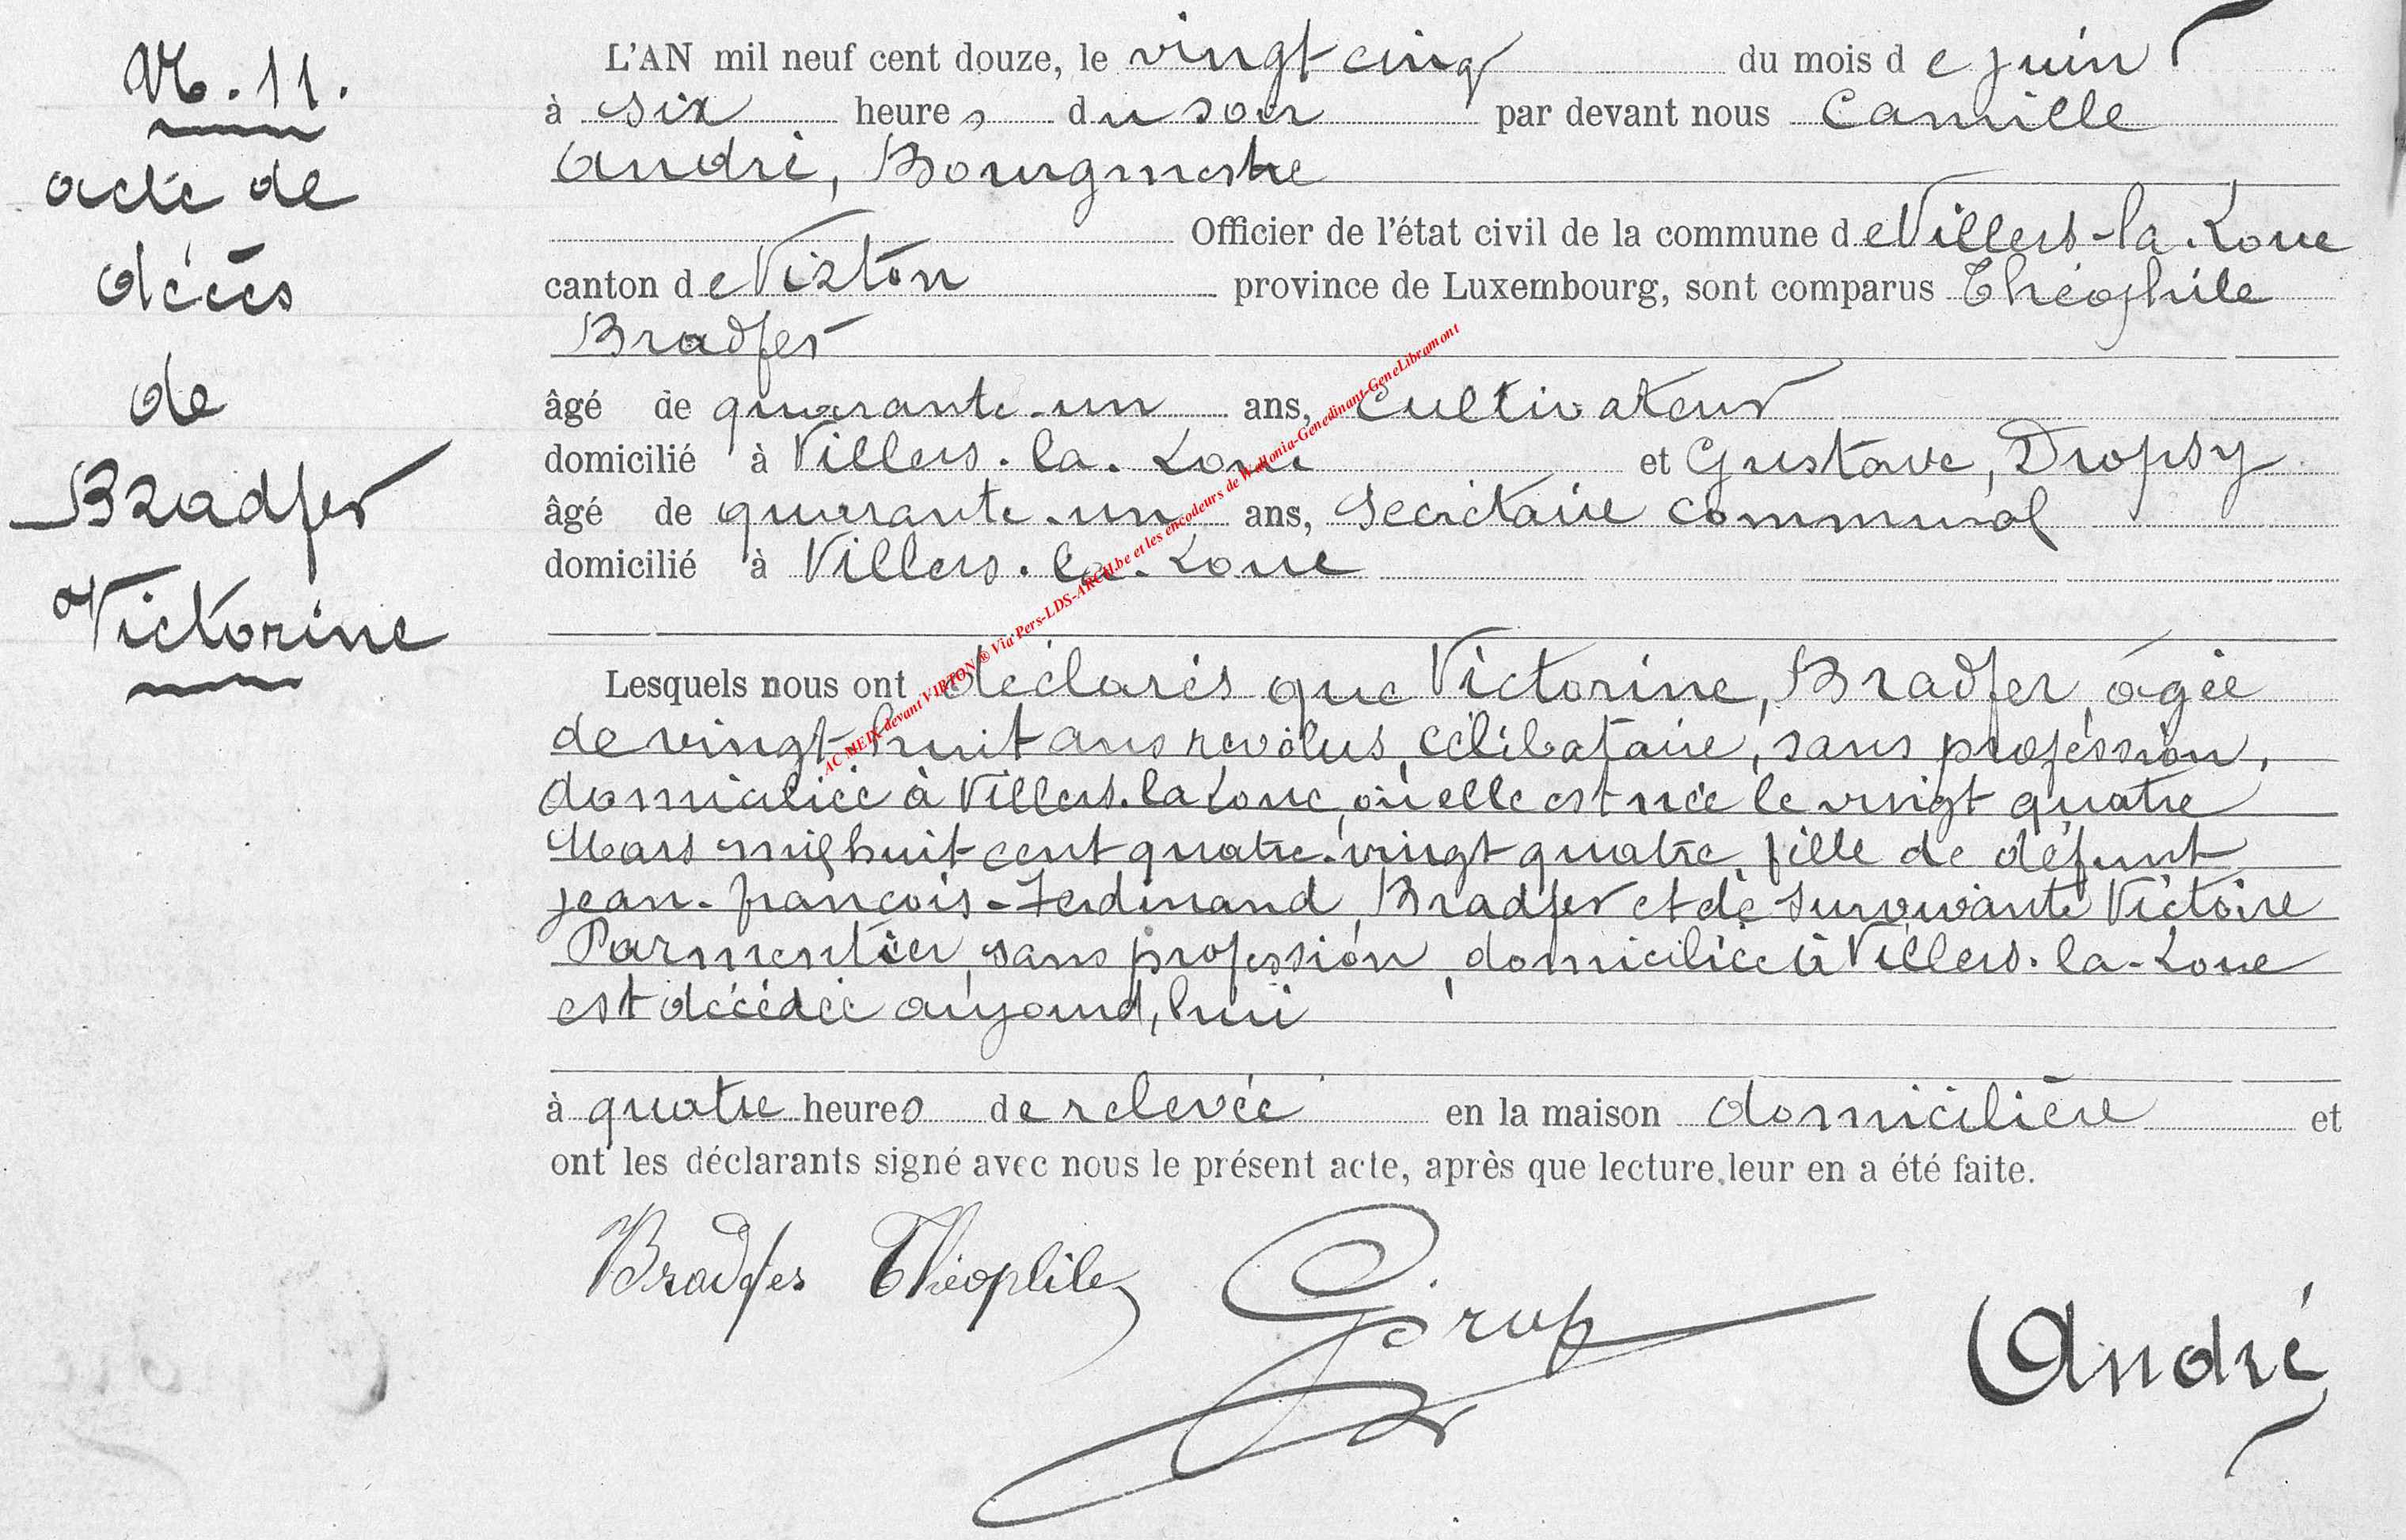 No. 11.
acte de
décès
de
Bradfer
Victorine
L'AN mil neuf cent douze, le vingt cinq du mois de juin
à six heures du soir par devant nous Camille
André, Bourgmestre
Officier de l'état civil de la commune de Villers-la-Loue
canton de Virton province de Luxembourg, sont comparus Théophile
Bradfer
âgé de quarante-un ans, Cultivateur
domicilié à Villers-la-Loue et Gustave, Dropsy
âgé de quarante-un ans, Secrétaire communal
domicilié à Villers-la-Loue
Lesquels nous ont déclarés que Victorine, Bradfer, âgée
de vingt-huit ans révolus, célibataire, sans profession,
domiciliée à Villers-la-Loue, où elle est née le vingt quatre
Mars mil huit cent quatre-vingt quatre, fille de défunt
Jean-François-Ferdinand, Bradfer et de survivante Victoire
Parmentier, sans profession, domiciliée à Villers-la-Loue
est décédée aujourd,hui
à quatre heures de relevée en la maison domicilière et
ont les déclarants signé avec nous le présent acte, après que lecture leur en a été faite.
Bradfer Théophile André
AC MEIX-devant VIRTON ® Via Pers-LDS-ARCH.be et les encodeurs de Wallonia-Genedinant-GeneLibramont